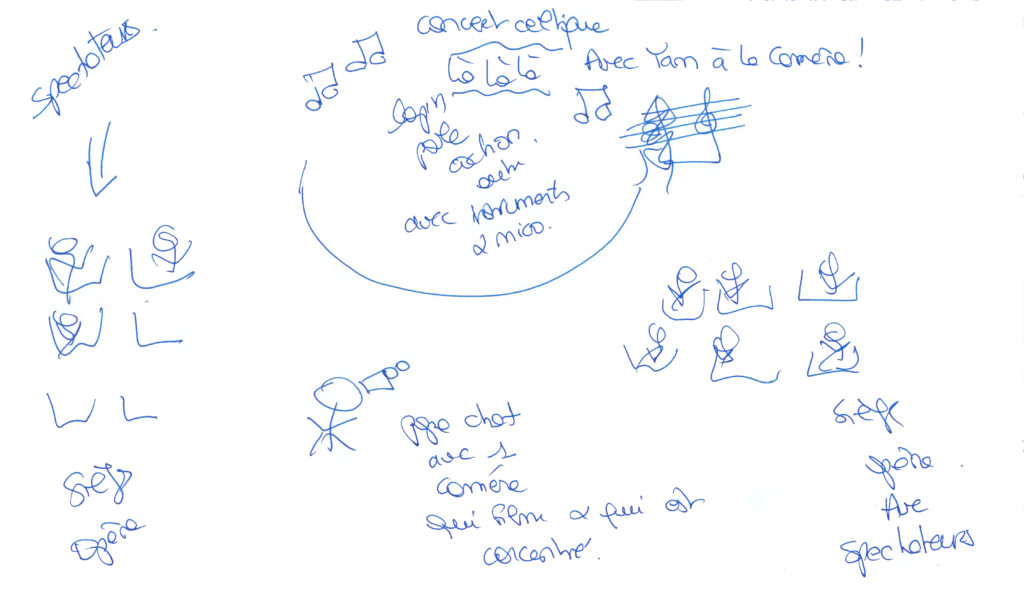 spectateurs.
concert celtique
là là là
Avec Yann à la caméra !
lapin
pole
cochon.
avec instruments
& micro.
chat
avec 1
caméra
qui filme & qui est
concentré.
siège
opéra
siège
opéra.
Ave
spectateurs